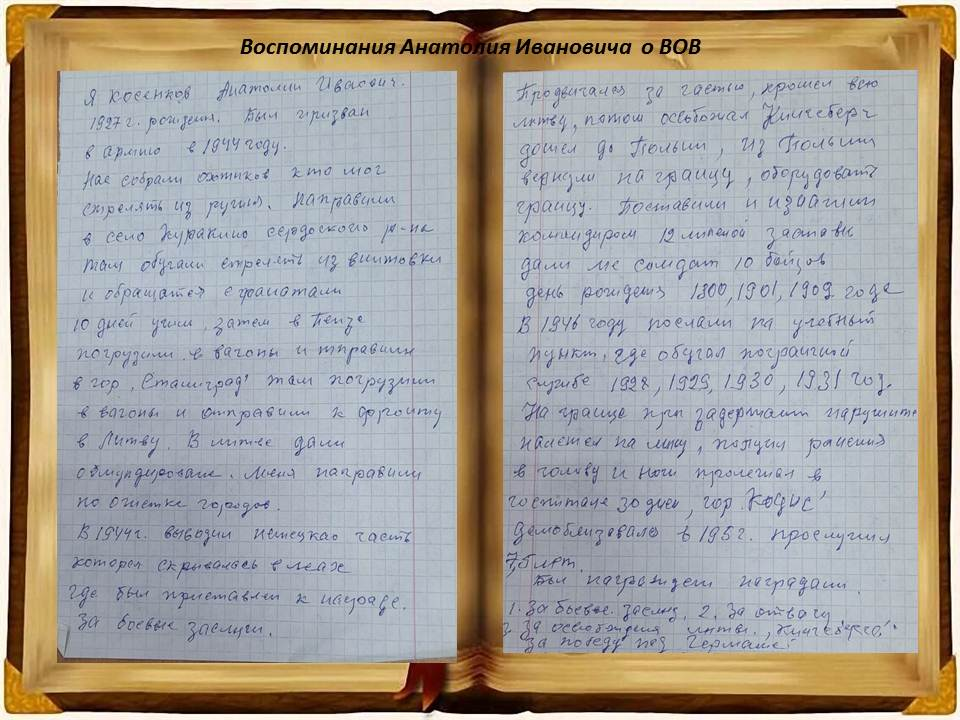 Воспоминания Анатолия Ивановича о ВОВ
Я Косенков Анатолий Иваович.
1927 г. рождения. Был призван
в армию в 1944 году.
Нас собрали охтиков кто мог
стрелять из ружия. Направили
в село Куракино сердоского р-на
там обучали стрелять из винтовки
и обращатся с гранатами
10 дней учили, затем в Пензе
погрузили в вагоны и отправили
в гор. Сталинград там погрузили
в вагоны и отправили к фронту
в Литву. В литве дали
обмундироване. Меня направили
по очистке городов.
В 1944 г. выводил немецкаю часть
которая скрывалась в лесах
где был приставлен к награде.
За боевые заслуги.
Продвигался за частью, прошел всю
литву, потом освобожал Кинегсберг
дошел до Польши, из Польши
вернули на границу, оборудовать
границу. Поставили и
командиром 12 заставы
дали мне солдат 10 бойцов
день рождения 1900, 1901, 1909 года
В 1946 году послали на учебный
пункт, где обучал пограничной
службе 1928, 1929, 1930, 1931 год.
На границе при задержании нарушите
на мину, получил ранения
в голову и ноги пролежал в
госпитале 30 дней, гор.
Демоблизовался в 195 г. прослужил
7,5 лет.
Был награжден наградами.
1. За боевые. заслуги, 2. За отвагу
3. За освобождения литвы., Кингсберга.
За победу над Германией